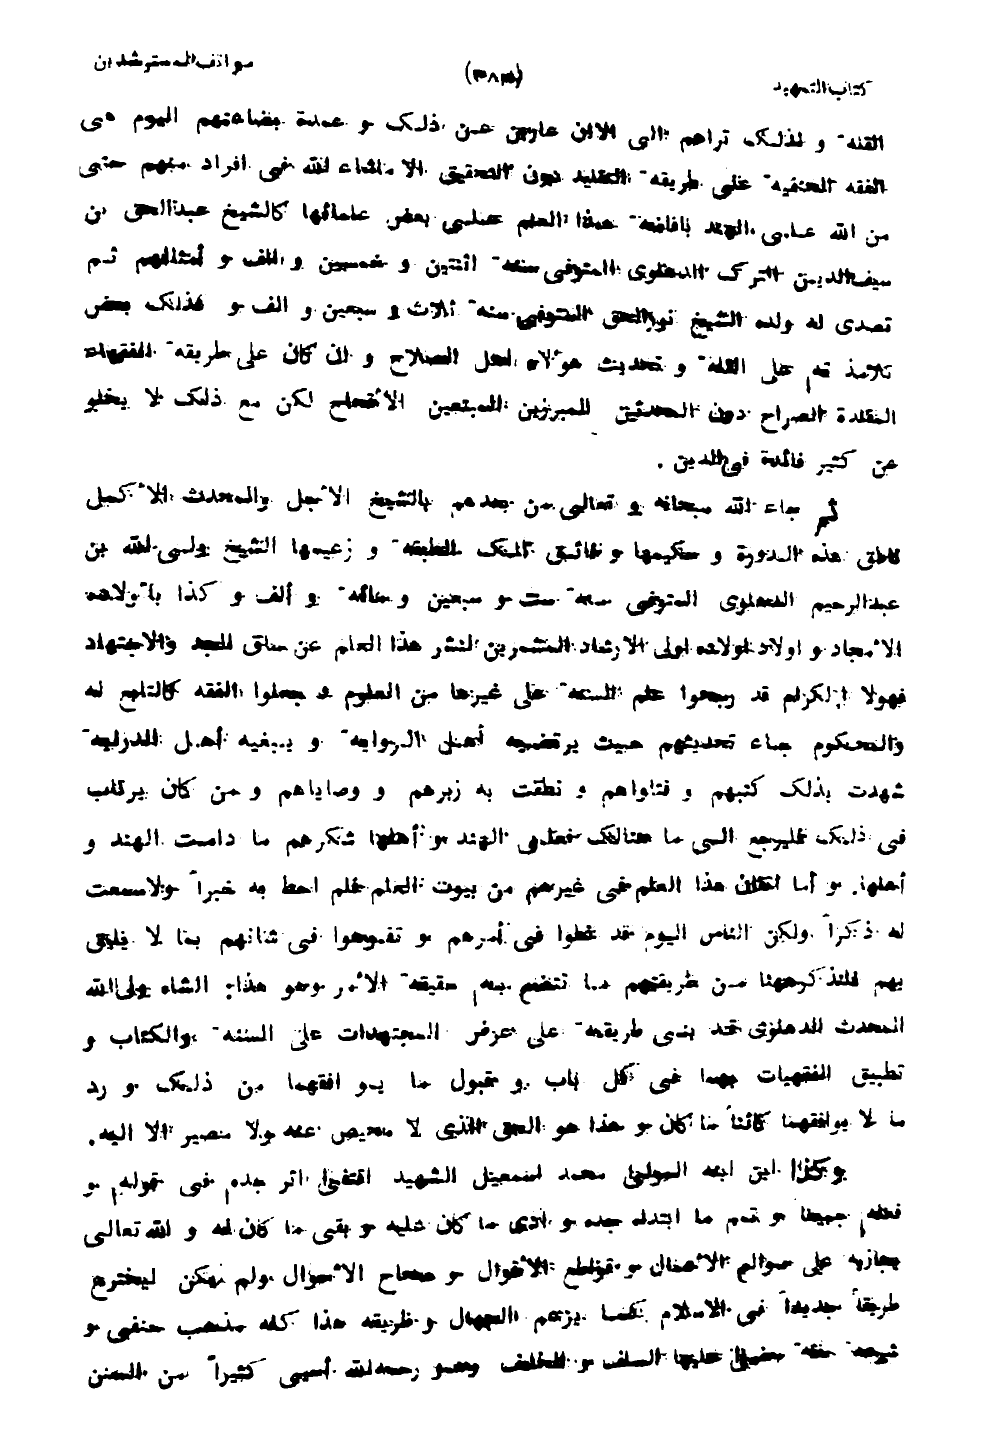 كتاب التمهيد (٣٨٣) مواقف المسترشدين
القله و لذلك تراهم الى الان عارين عن ذلك و عمدة بضاعتهم اليوم هى
الفقه الحنفيه على طريقه التقليد دون التحقيق الا ماشاء الله فى افراد منهم حتى
من الله على الهند بافاضه هذا العلم على بعض علمائها كالشيخ عبدالحق بن
سيف الدين الترك الدهلوى المتوفى سنه اثنتين و خمسين و الف و أمثالهم ثم
تصدى له ولده الشيخ نورالحق المتوفى سنه ثلاث و سبعين و الف و كذلك بعض
تلامذ ته على القله و تحديث هولاء اهل الصلاح و ان كان على طريقه الفقهاء
المقلدة الصراح دون المحدثين المبرزين المتبعين الأقحاح لكن مع ذلك لا يخلو
عن كثير فائدة فى الدين .
ثم جاء الله سبحانه و تعالى من بعدهم بالشيخ الاجل والمحدث الاكمل
ناطق هذه الدورة و حكيمها و فائق تلك الطبقه و زعيمها الشيخ ولى الله بن
عبدالرحيم الدهلوى المتوفى سنه ست و سبعين و مائه و ألف و كذا باولاده
الامجاد و اولاد اولاده اولى الارشاد المشمرين لنشر هذا العلم عن ساق الجد والاجتهاد
فهولا الكرام قد رجحوا علم السنه على غيرها من العلوم و جعلوا الفقه كالتابع له
والمحكوم جاء تحديثهم حيث يرتضيه أهل الروايه و يبغيه أهل الدرايه
شهدت بذلك كتبهم و فتاواهم و نطقت به زبرهم و وصاياهم و من كان يرتاب
فى ذلك فليرجع الى ما هنالك فعلى الهند و أهلها شكرهم ما دامت الهند و
أهلها. و أما اتقان هذا العلم فى غيرهم من بيوت العلم فلم احط به خبراً ولاسمعت
له ذكراً ولكن الناس اليوم قد غلوا فى أمرهم و تفوهوا فى شانهم بما لا يليق
بهم فلنذكر ههنا من طريقتهم ما تتضح به حقيقه الأمر وهو هذا: الشاه ولى الله
المحدث الدهلوى قد بنى طريقه على عرض المجتهدات على السنه والكتاب و
تطبيق الفقهيات بهما فى كل باب و قبول ما يوافقهما من ذلك و رد
ما لا يوافقهما كائناً ما كان و هذا هو الحق الذى لا محيص عنه ولا مصير الا اليه.
وكذا ابن ابنه المولى محمد اسمعيل الشهيد اقتفى اثر جده فى قوله و
فعله جميعا و تمم ما ابتدئه جده و ادى ما كان عليه و بقى ما كان له و الله تعالى
مجازيه على صوالح الأعمال و قواطع الأقوال و صحاح الأحوال ولم يكن ليخترع
طريقاً جديداً فى الاسلام كما يزعم الجهال و طريقه هذا كله مذهب حنفى و
شرعه حقه مضى عليها السلف و الخلف وهو رحمه الله أحيى كثيراً من السنن